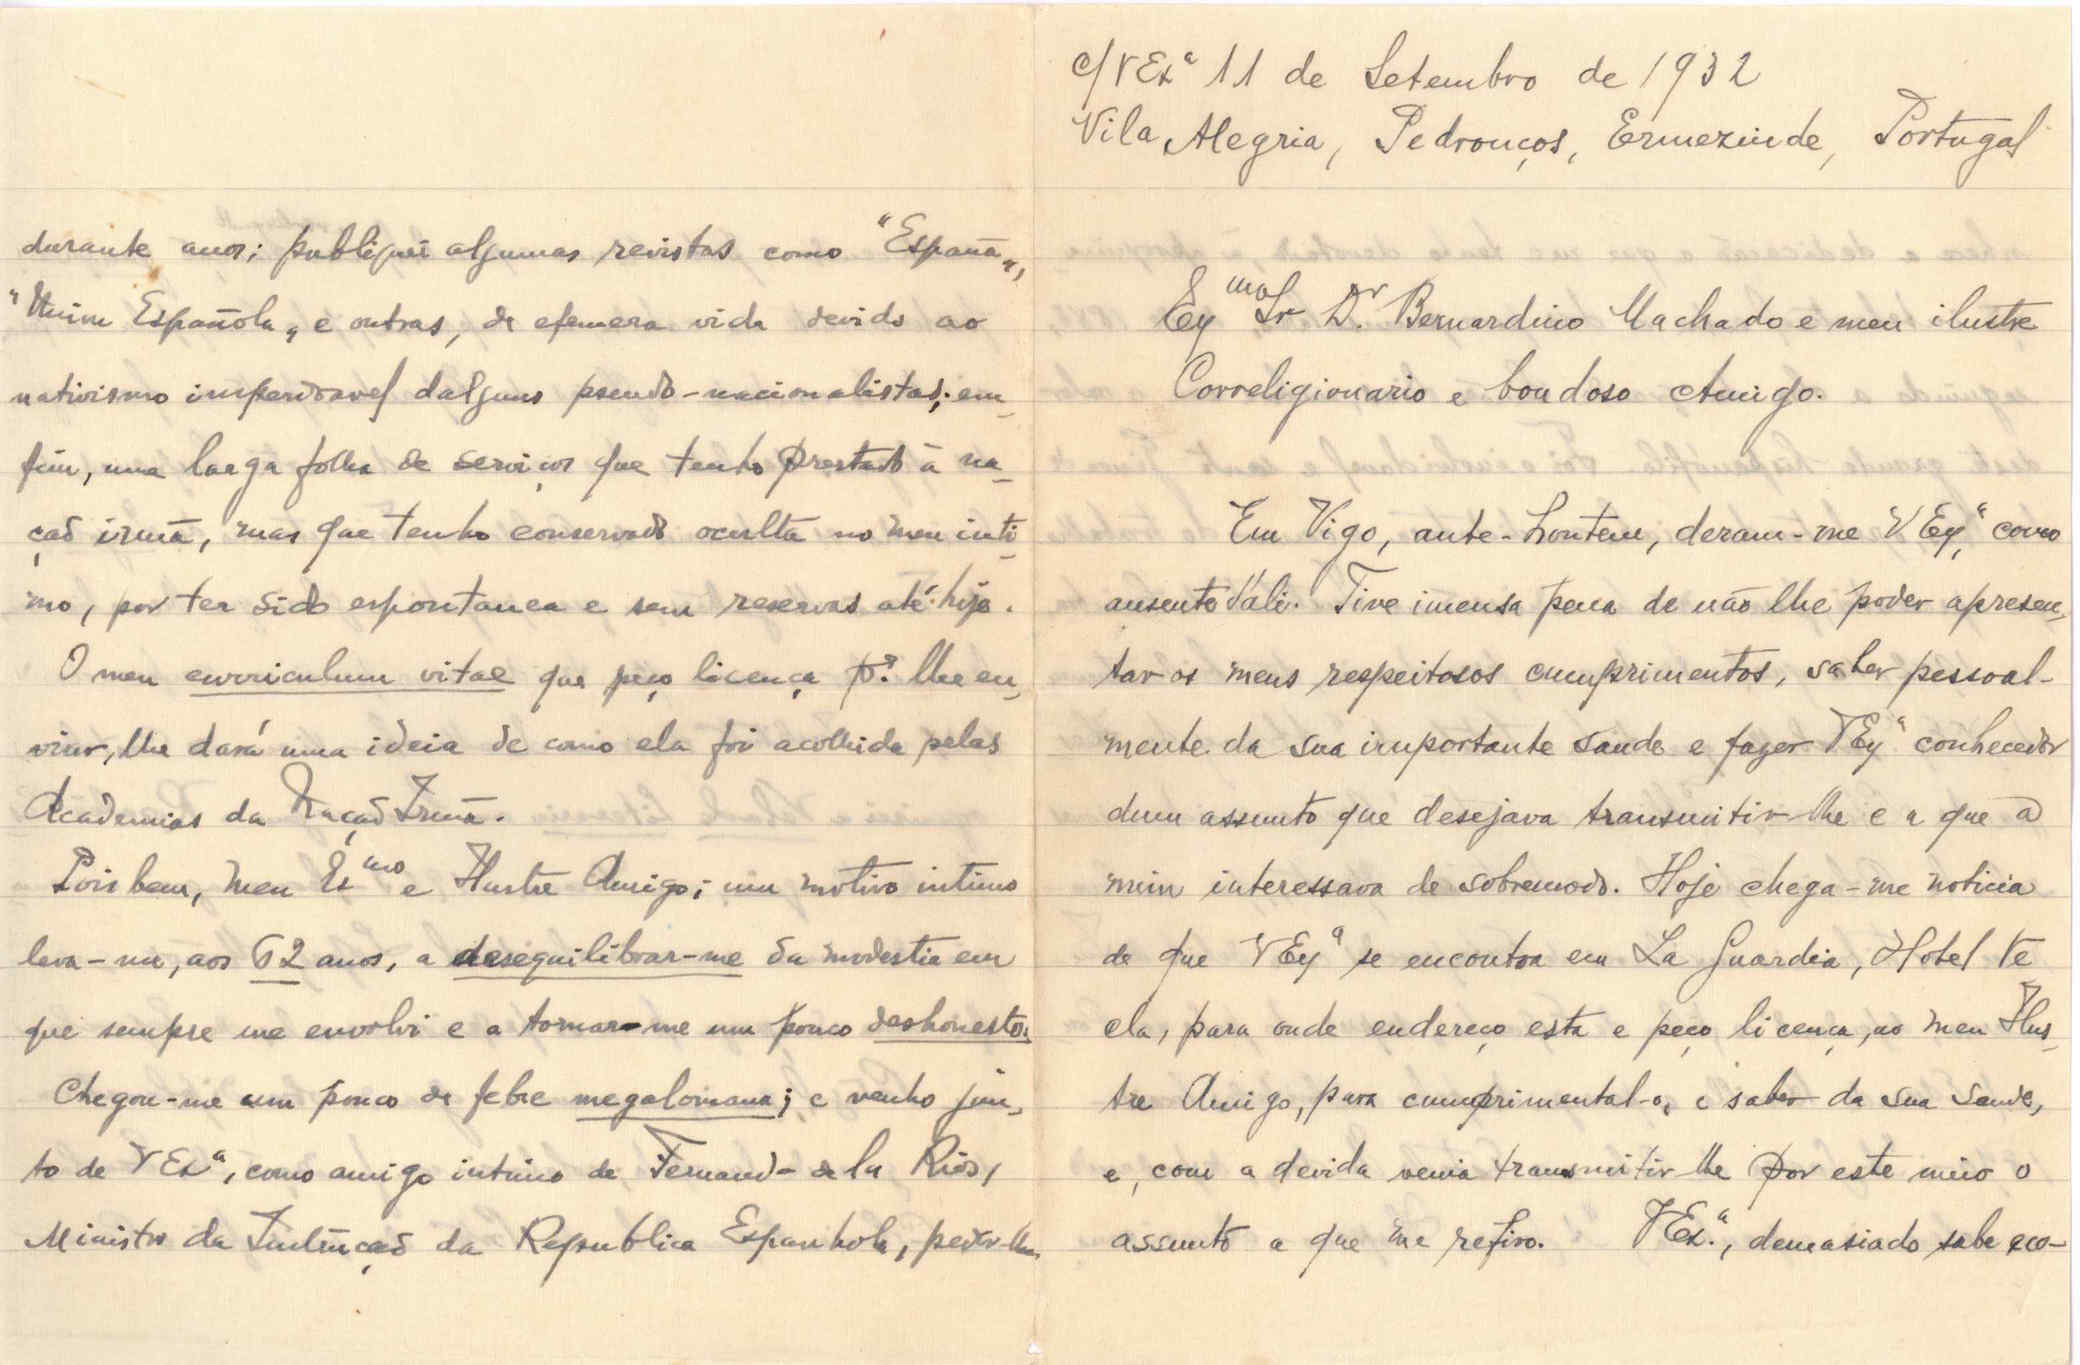 c/ V Exª 11 de Setembro de 1932
Vila Alegria, Pedrouços, Ermezinde, Portugal
Exmo Sr Dr. Bernardino Machado e meu ilustre
Correligionario e bondoso Amigo.
Em Vigo, ante-hontem, deram-me V Exª, como
ausente d'ali. Tive imensa pena de não lhe poder apresen-
tar os meus respeitosos cumprimentos, saber pessoal-
mente da sua importante saude e fazer V Exª conhecedor
dum assunto que desejava transmitir-lhe e a que a
mim interessava de sobremodo. Hoje chega-me noticia
de que V Exª se encontra em La Guardia, Hotel Te
cla, para onde endereço esta e peço licença, ao meu Ilus-
tre Amigo, para cumprimental-o, e saber da sua saude,
e, com a devida venia transmitir lhe por este meio o
assunto a que me refiro. V Ex.ª, demasiado sabe
durante anos; publiquei algumas revistas como "España",
Española" e outras, de efemera vida devido ao
nativismo imperdoavel dalguns pseudo-nacionalistas; em-
fim, uma larga folha de serviços que tenho prestado à na-
ção irmã, mas que tenho conservado oculta no meu inti-
mo, por ter sido espontanea e sem reservas até hoje.
O meu curriculum vitae que peço licença pª. lhe en-
viar, lhe dará uma ideia de como ela foi acolhida pelas
Academias da Nação Irmã.
Pois bem, meu Exmo e Ilustre Amigo; um motivo intimo
leva-me, aos 62 anos, a desequilibrar-me da modestia em
que sempre me envolvi e a tornar-me um pouco deshonesto.
Chegou-me um pouco de febre megalomana; e venho jun-
to de V Exª, como amigo intimo de Fernando de la Rios,
Ministro da Instrução da Republica Espanhola, pedir-lhe